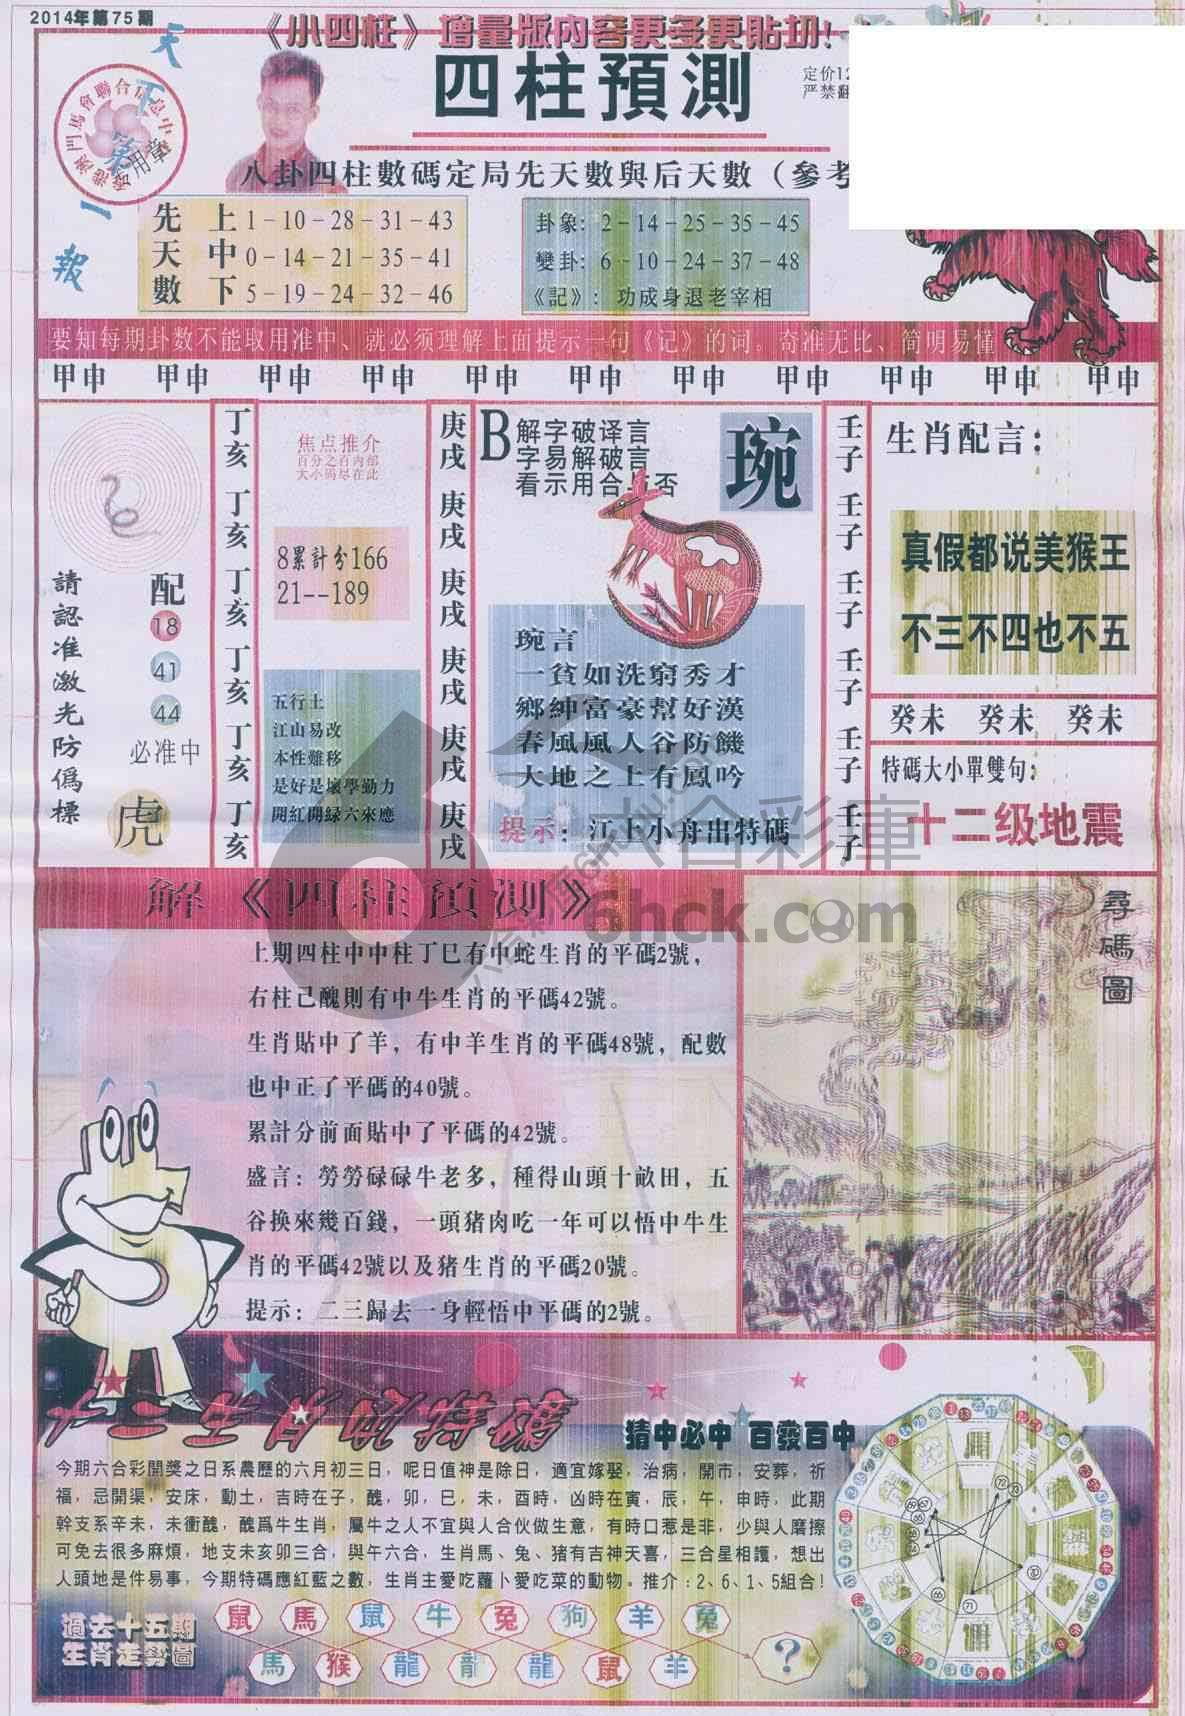 2014年第75期
《小四柱》增量版內容更多更貼切!
天下第一報
四柱預測
定价12
严禁翻
八卦四柱數碼定局先天數與后天數（參考
先天數
上 1－10－28－31－43
中 0－14－21－35－41
下 5－19－24－32－46
卦象: 2－14－25－35－45
變卦: 6－10－24－37－48
《記》: 功成身退老宰相
要知每期卦数不能取用准中、就必须理解上面提示一句《记》的词。奇准无比、简明易懂
甲申 甲申 甲申 甲申 甲申 甲申 甲申 甲申 甲申 甲申 甲申
請認准激光防僞標
配
18
41
44
必准中
虎
丁亥 丁亥 丁亥 丁亥 丁亥 丁亥
焦点推介
百分之百內部
大小码尽在此
8累計分166
21--189
五行土
江山易改
本性難移
是好是壞學勤力
開紅開緑六來應
庚戌 庚戌 庚戌 庚戌 庚戌 庚戌
B
解字破译言
字易解破言
看示用合与否
琬
琬言
一貧如洗窮秀才
鄉紳富豪幫好漢
春風風人谷防饑
大地之上有鳳吟
提示: 江上小舟出特碼
壬子 壬子 壬子 壬子 壬子 壬子
生肖配言:
真假都说美猴王
不三不四也不五
癸未 癸未 癸未
特碼大小單雙句:
十二级地震
六合彩庫
6hck.com
解《四柱預測》
上期四柱中中柱丁巳有中蛇生肖的平碼2號，
右柱己醜則有中牛生肖的平碼42號。
生肖貼中了羊，有中羊生肖的平碼48號，配數
也中正了平碼的40號。
累計分前面貼中了平碼的42號。
盛言: 勞勞碌碌牛老多，種得山頭十畝田，五
谷换來幾百錢，一頭猪肉吃一年可以悟中牛生
肖的平碼42號以及猪生肖的平碼20號。
提示: 二三歸去一身輕悟中平碼的2號。
尋碼圖
猜中必中 百發百中
今期六合彩開獎之日系農歷的六月初三日，呢日值神是除日，適宜嫁娶，治病，開市，安葬，祈
福，忌開渠，安床，動土，吉時在子，醜，卯，巳，未，酉時，凶時在寅，辰，午，申時，此期
幹支系辛未，未衝醜，醜爲牛生肖，屬牛之人不宜與人合伙做生意，有時口惹是非，少與人磨擦
可免去很多麻煩，地支未亥卯三合，與午六合，生肖馬、兔、猪有吉神天喜，三合星相護，想出
人頭地是件易事，今期特碼應紅藍之數，生肖主愛吃蘿卜愛吃菜的動物。推介:2、6、1、5組合!
過去十五期
生肖走勢圖
鼠 馬 鼠 牛 兔 狗 羊 兔
馬 猴 龍 龍 龍 鼠 羊
?